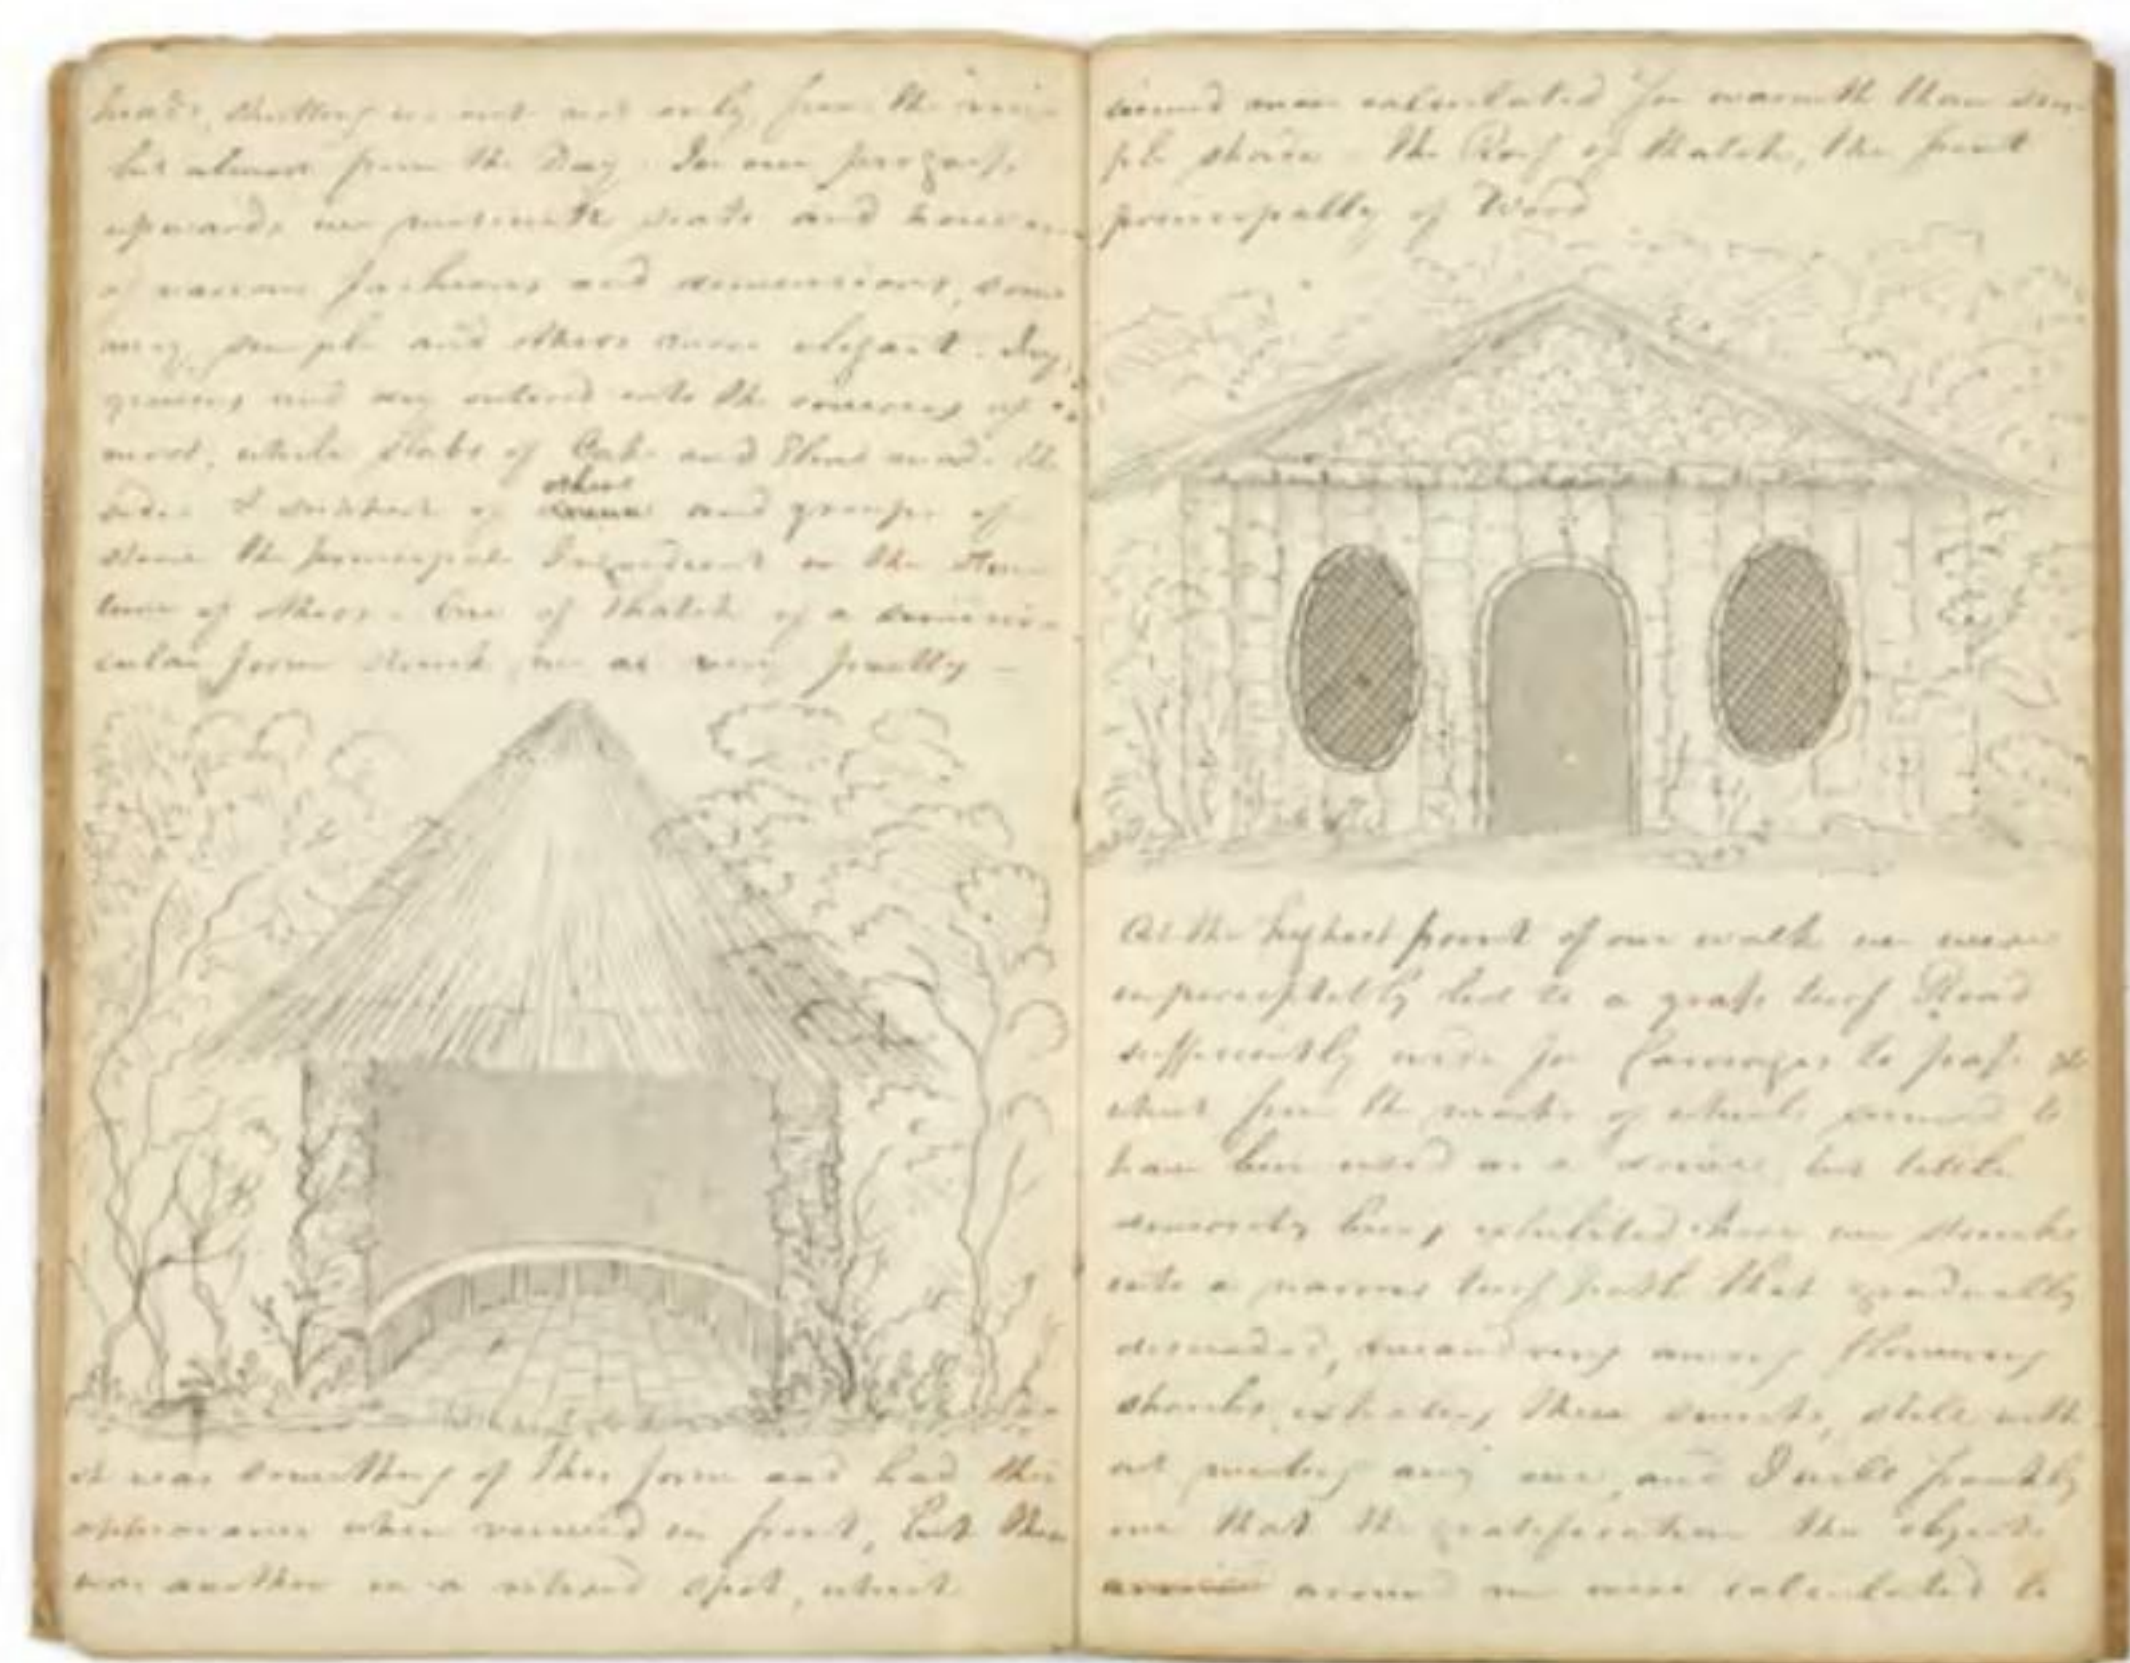 heads, shutting us out not only from the
but almost from the Day. In our progress
upwards we met with seats and houses
of various fashions and dimensions, some
very simple and others more elegant.
and ivy entered into the covering of
most, while slabs of Oak and Elm made the
sides & of others and groups of
stone the principal Ingredient in the
of others. One of thatch of a
form struck me as very pretty –
it was something of this form and had this
appearance when viewed in front, but there
was another in a retired spot, which
seemed more calculated for warmth than sim-
ple shade – the Roof of thatch, the front
principally of Wood
At the highest point of our walk we were
imperceptibly led to a grass turf Road
sufficiently wide for Carriages to pass &
which from the marks of wheels seemed to
have been used as a but little
curiosity being exhibited here we struck
into a narrow turf path that gradually
descended, meandering among flowering
shrubs, exhaling their sweets, still with
out meeting any one, and I will frankly
own that the gratification the objects
around me were calculated to